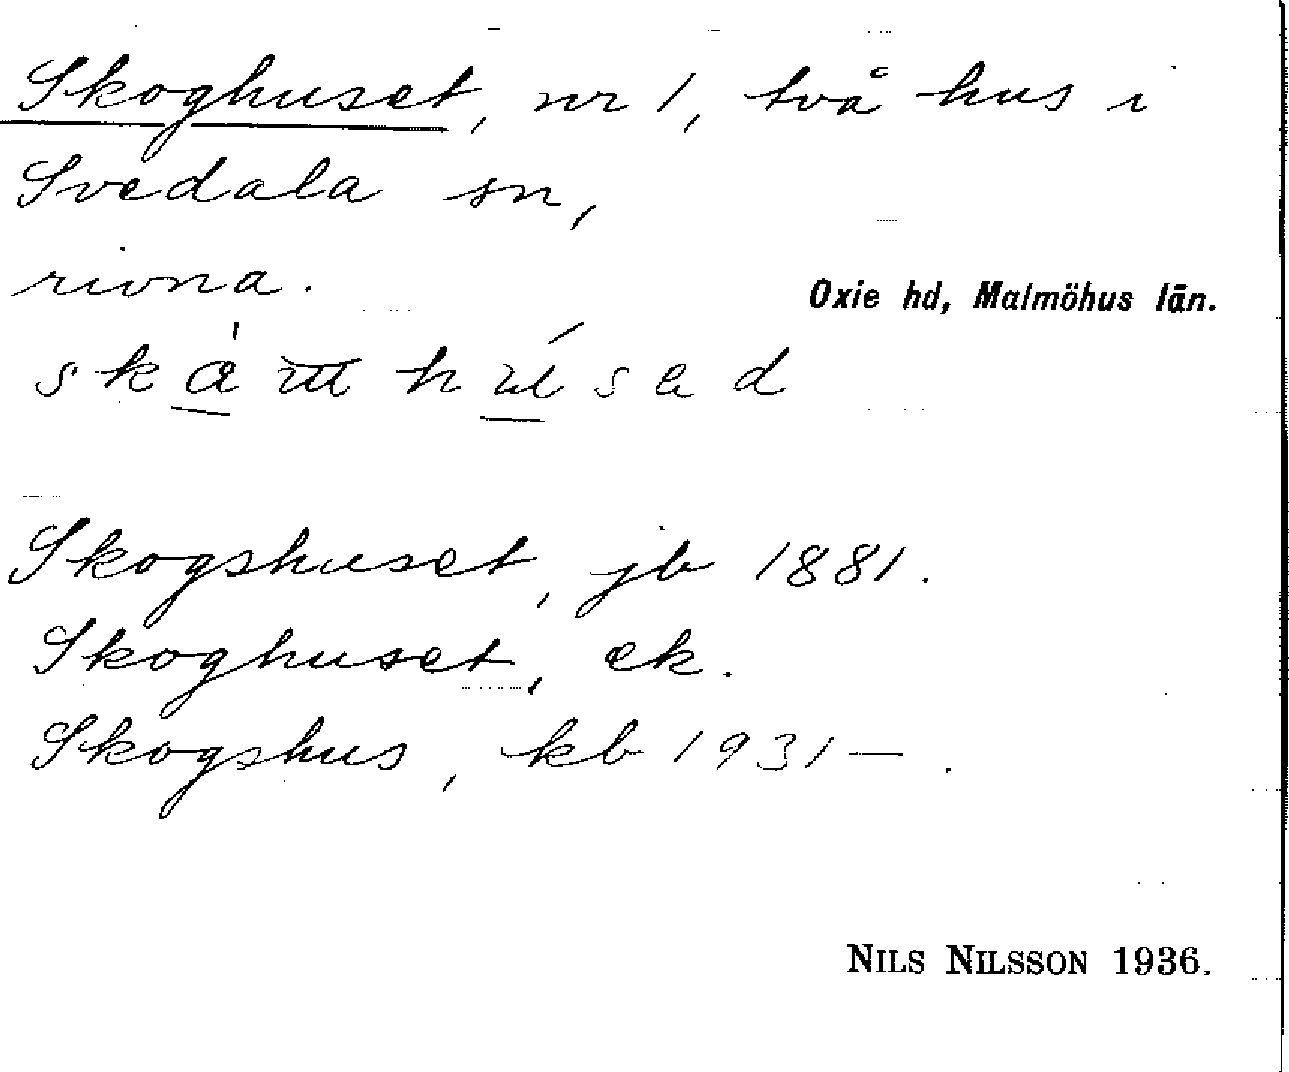 Skoghuset, nr 1, två hus i
Svedala sn,
rivna.
Oxie hd, Malmöhus län.
Skogshuset, jb 1881.
Skoghuset, ek.
Skogshus, kb 1931—.
NILS NILSSON 1936.